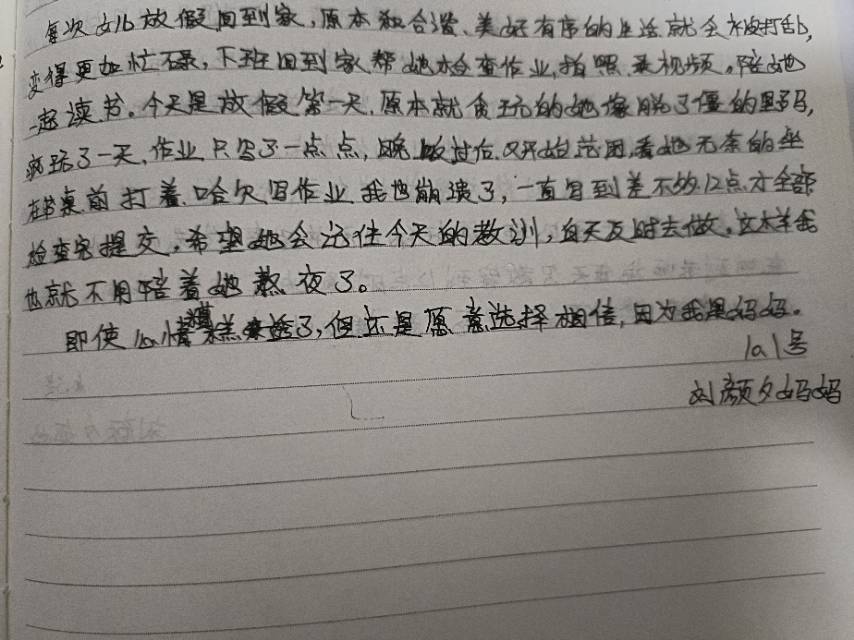 每次女儿放假回到家,原本和合谐、美好有序的生活就会被打乱,
变得更加忙碌,下班回到家帮她检查作业,拍照录视频。陪她
一起读书。今天是放假第一天,原本就贪玩的她像脱了僵的野马,
疯玩了一天,作业只写了一点点,晚饭过后又开始范困,看她无奈的坐
在书桌前打着哈欠写作业,我也崩溃了,一直写到差不多12点才全部
检查完提交,希望她会记住今天的教训,白天及时去做。这样我
也就不用陪着她熬夜了。
即使心情糟糕透了,但还是愿意选择相信,因为我是妈妈。
10.1号
刘颜夕妈妈